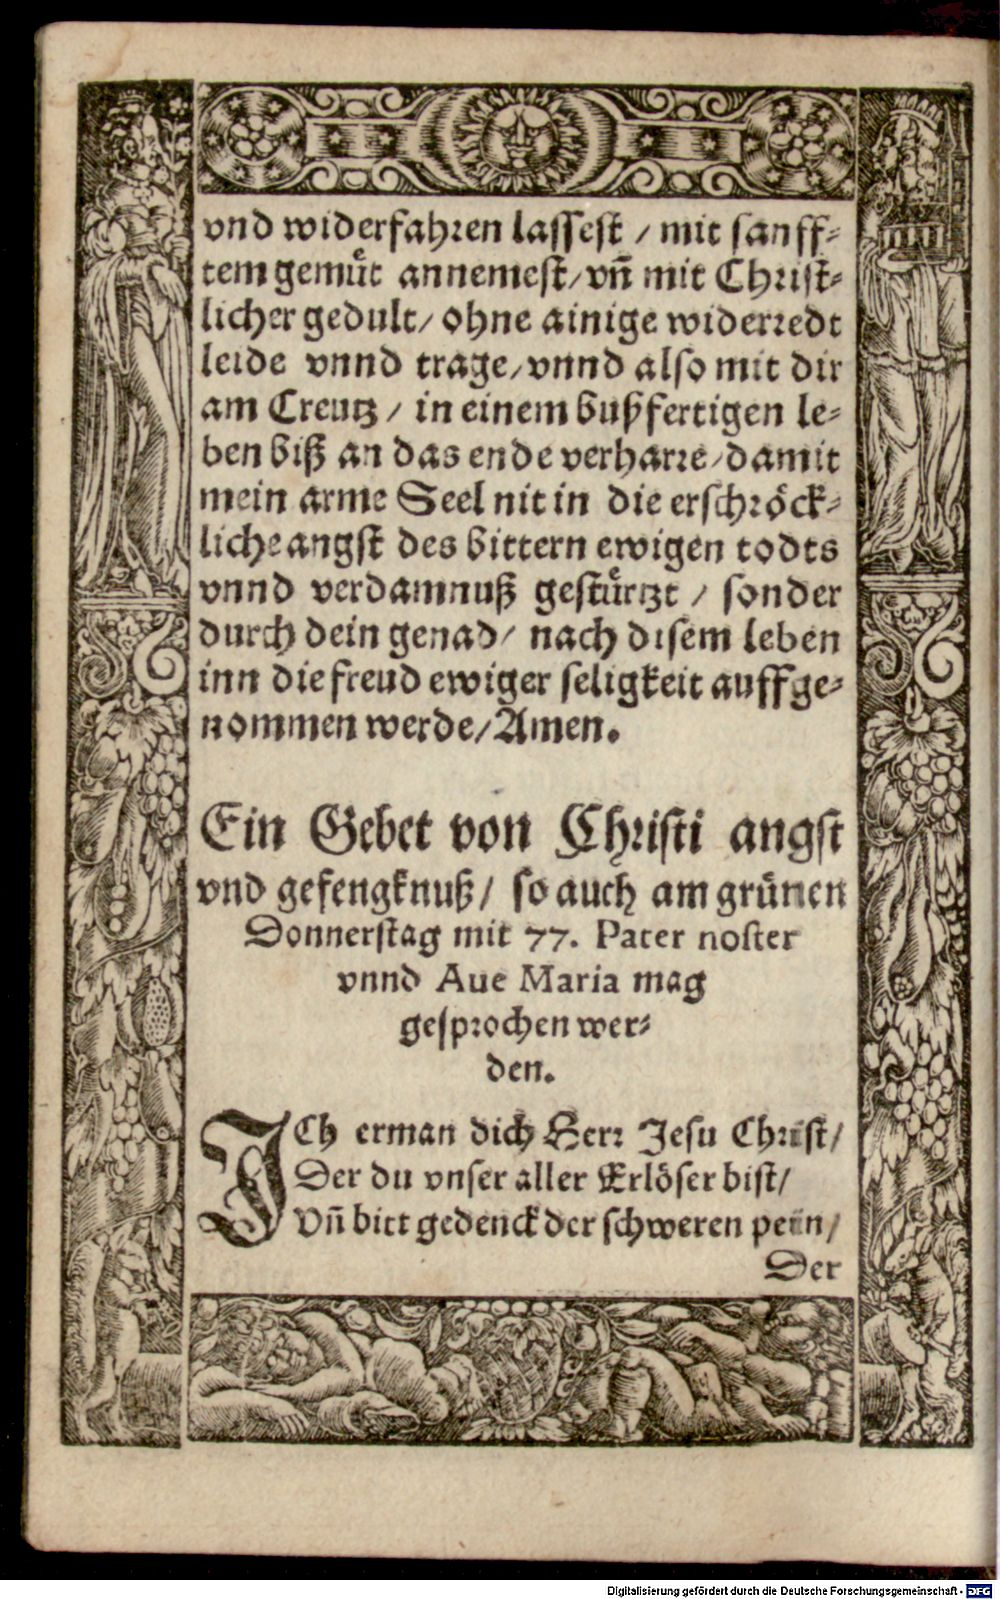 vnd widerfahren lassest / mit sanff⸗
tem gemuͤt annemest / vñ mit Christ⸗
licher gedult / ohne ainige widerredt
leide vnnd trage / vnnd also mit dir
am Creutz / in einem bußfertigen le⸗
ben biß an das ende verharre / damit
mein arme Seel nit in die erschröck⸗
liche angst des bittern ewigen todts
vnnd verdamnuß gestuͤrtzt / sonder
durch dein genad / nach disem leben
inn die freud ewiger seligkeit auffge⸗
nommen werde / Amen.
Ein Gebet von Christi angst
vnd gefengknuß / so auch am gruͤnen
Donnerstag mit 77. Pater noster
vnnd Aue Maria mag
gesprochen wer⸗
den.
ICh erman dich Herr Jesu Christ /
Der du vnser aller Erlöser bist /
Vñ bitt gedenck der schweren pein /
Der
Digitalisierung gefördert durch die Deutsche Forschungsgemeinschaft - DFG